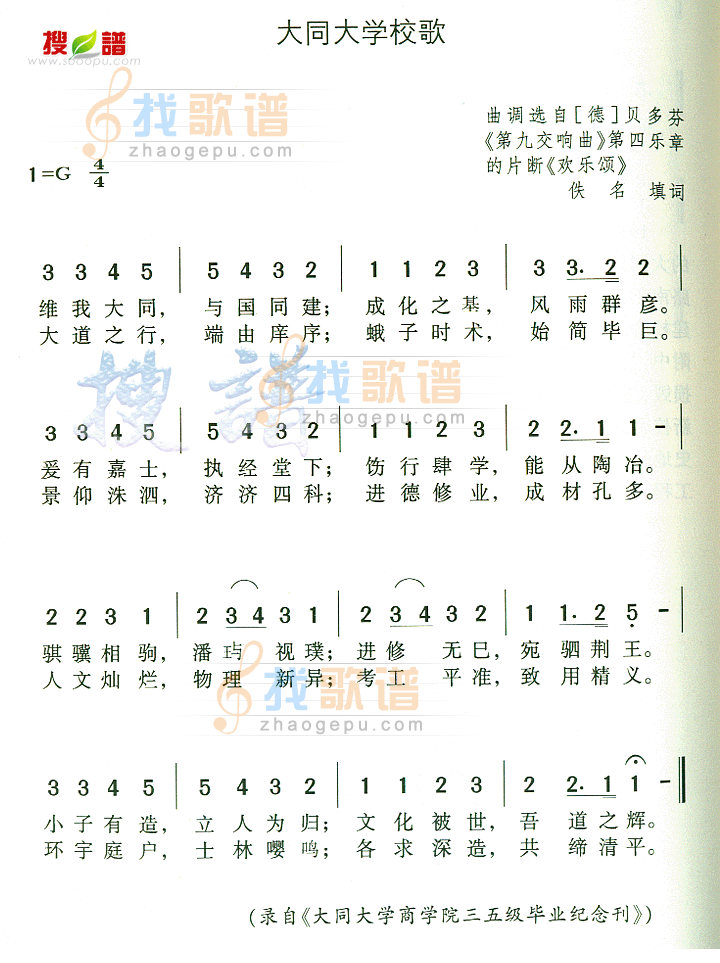 搜谱
www.sooopu.com
大同大学校歌
找歌谱
zhaogepu.com
曲调选自[德]贝多芬
《第九交响曲》第四乐章
的片断《欢乐颂》
佚名 填词
1=G 4/4
3 3 4 5 | 5 4 3 2 | 1 1 2 3 | 3 3. 2 2 |
维我大同，与国同建；成化之基，风雨群彦。
大道之行，端由庠序；蛾子时术，始简毕巨。
搜谱
找歌谱
zhaogepu.com
3 3 4 5 | 5 4 3 2 | 1 1 2 3 | 2 2. 1 1 - |
爰有嘉士，执经堂下；饬行肆学，能从陶冶。
景仰洙泗，济济四科；进德修业，成材孔多。
2 2 3 1 | 2 3 4 3 1 | 2 3 4 3 2 | 1 1. 2 5 - |
骐骥相驹，潘玙视璞；进修无已，宛驷荆王。
人文灿烂，物理新异；考工平准，致用精义。
找歌谱
zhaogepu.com
3 3 4 5 | 5 4 3 2 | 1 1 2 3 | 2 2. 1 1 - ‖
小子有造，立人为归；文化被世，吾道之辉。
环宇庭户，士林嘤鸣；各求深造，共缔清平。
(录自《大同大学商学院三五级毕业纪念刊》)